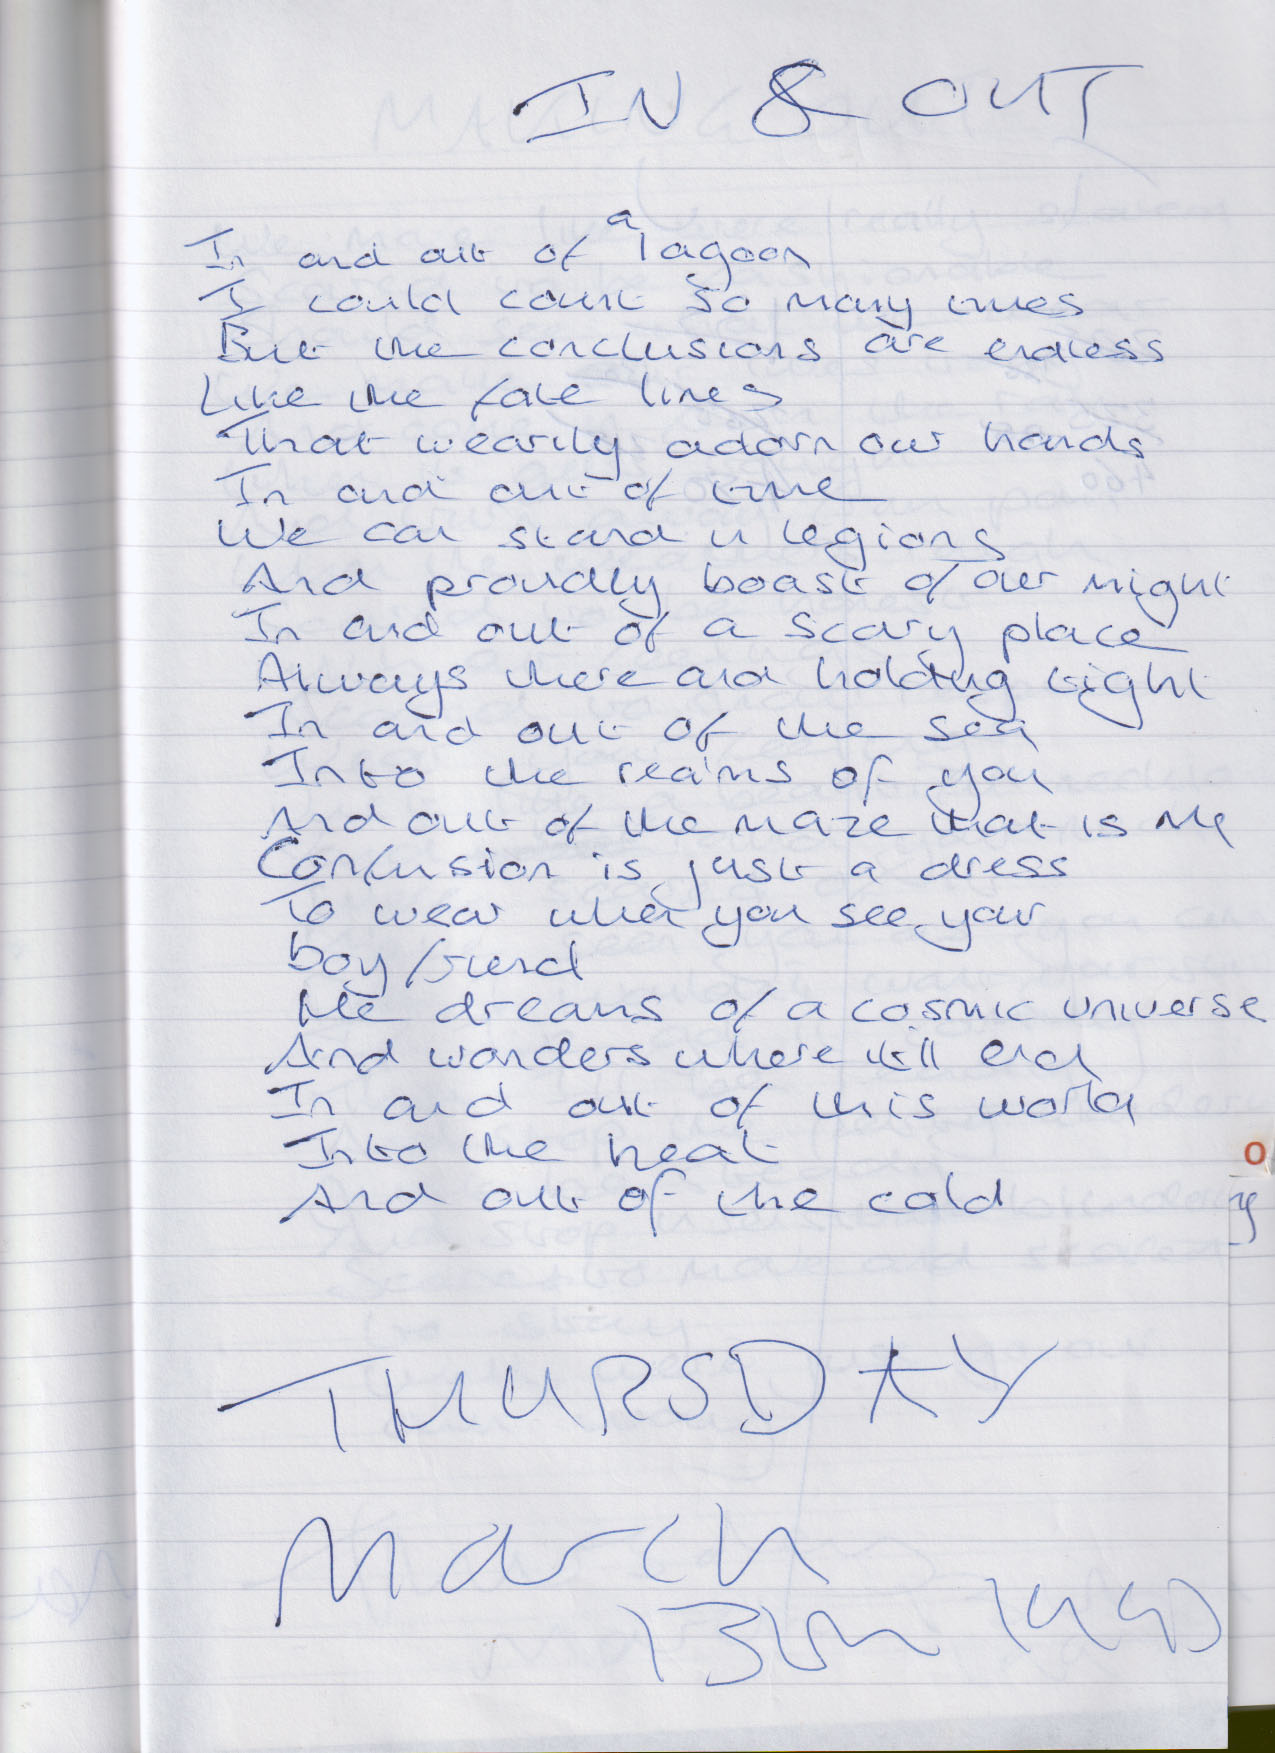 IN & OUT
In and out of a lagoon
I could count so many times
But the conclusions are endless
Like the fate lines
That wearily adorn our hands
In and out of time
We can stand in legions
And proudly boast of our might
In and out of a scary place
Always there and holding tight
In and out of the sea
Into the realms of you
And out of the maze that is me
Confusion is just a dress
To wear when you see your
boyfriend
He dreams of a cosmic universe
And wonders where it'll end
In and out of this world
Into the heat
And out of the cold
THURSDAY
March
13th